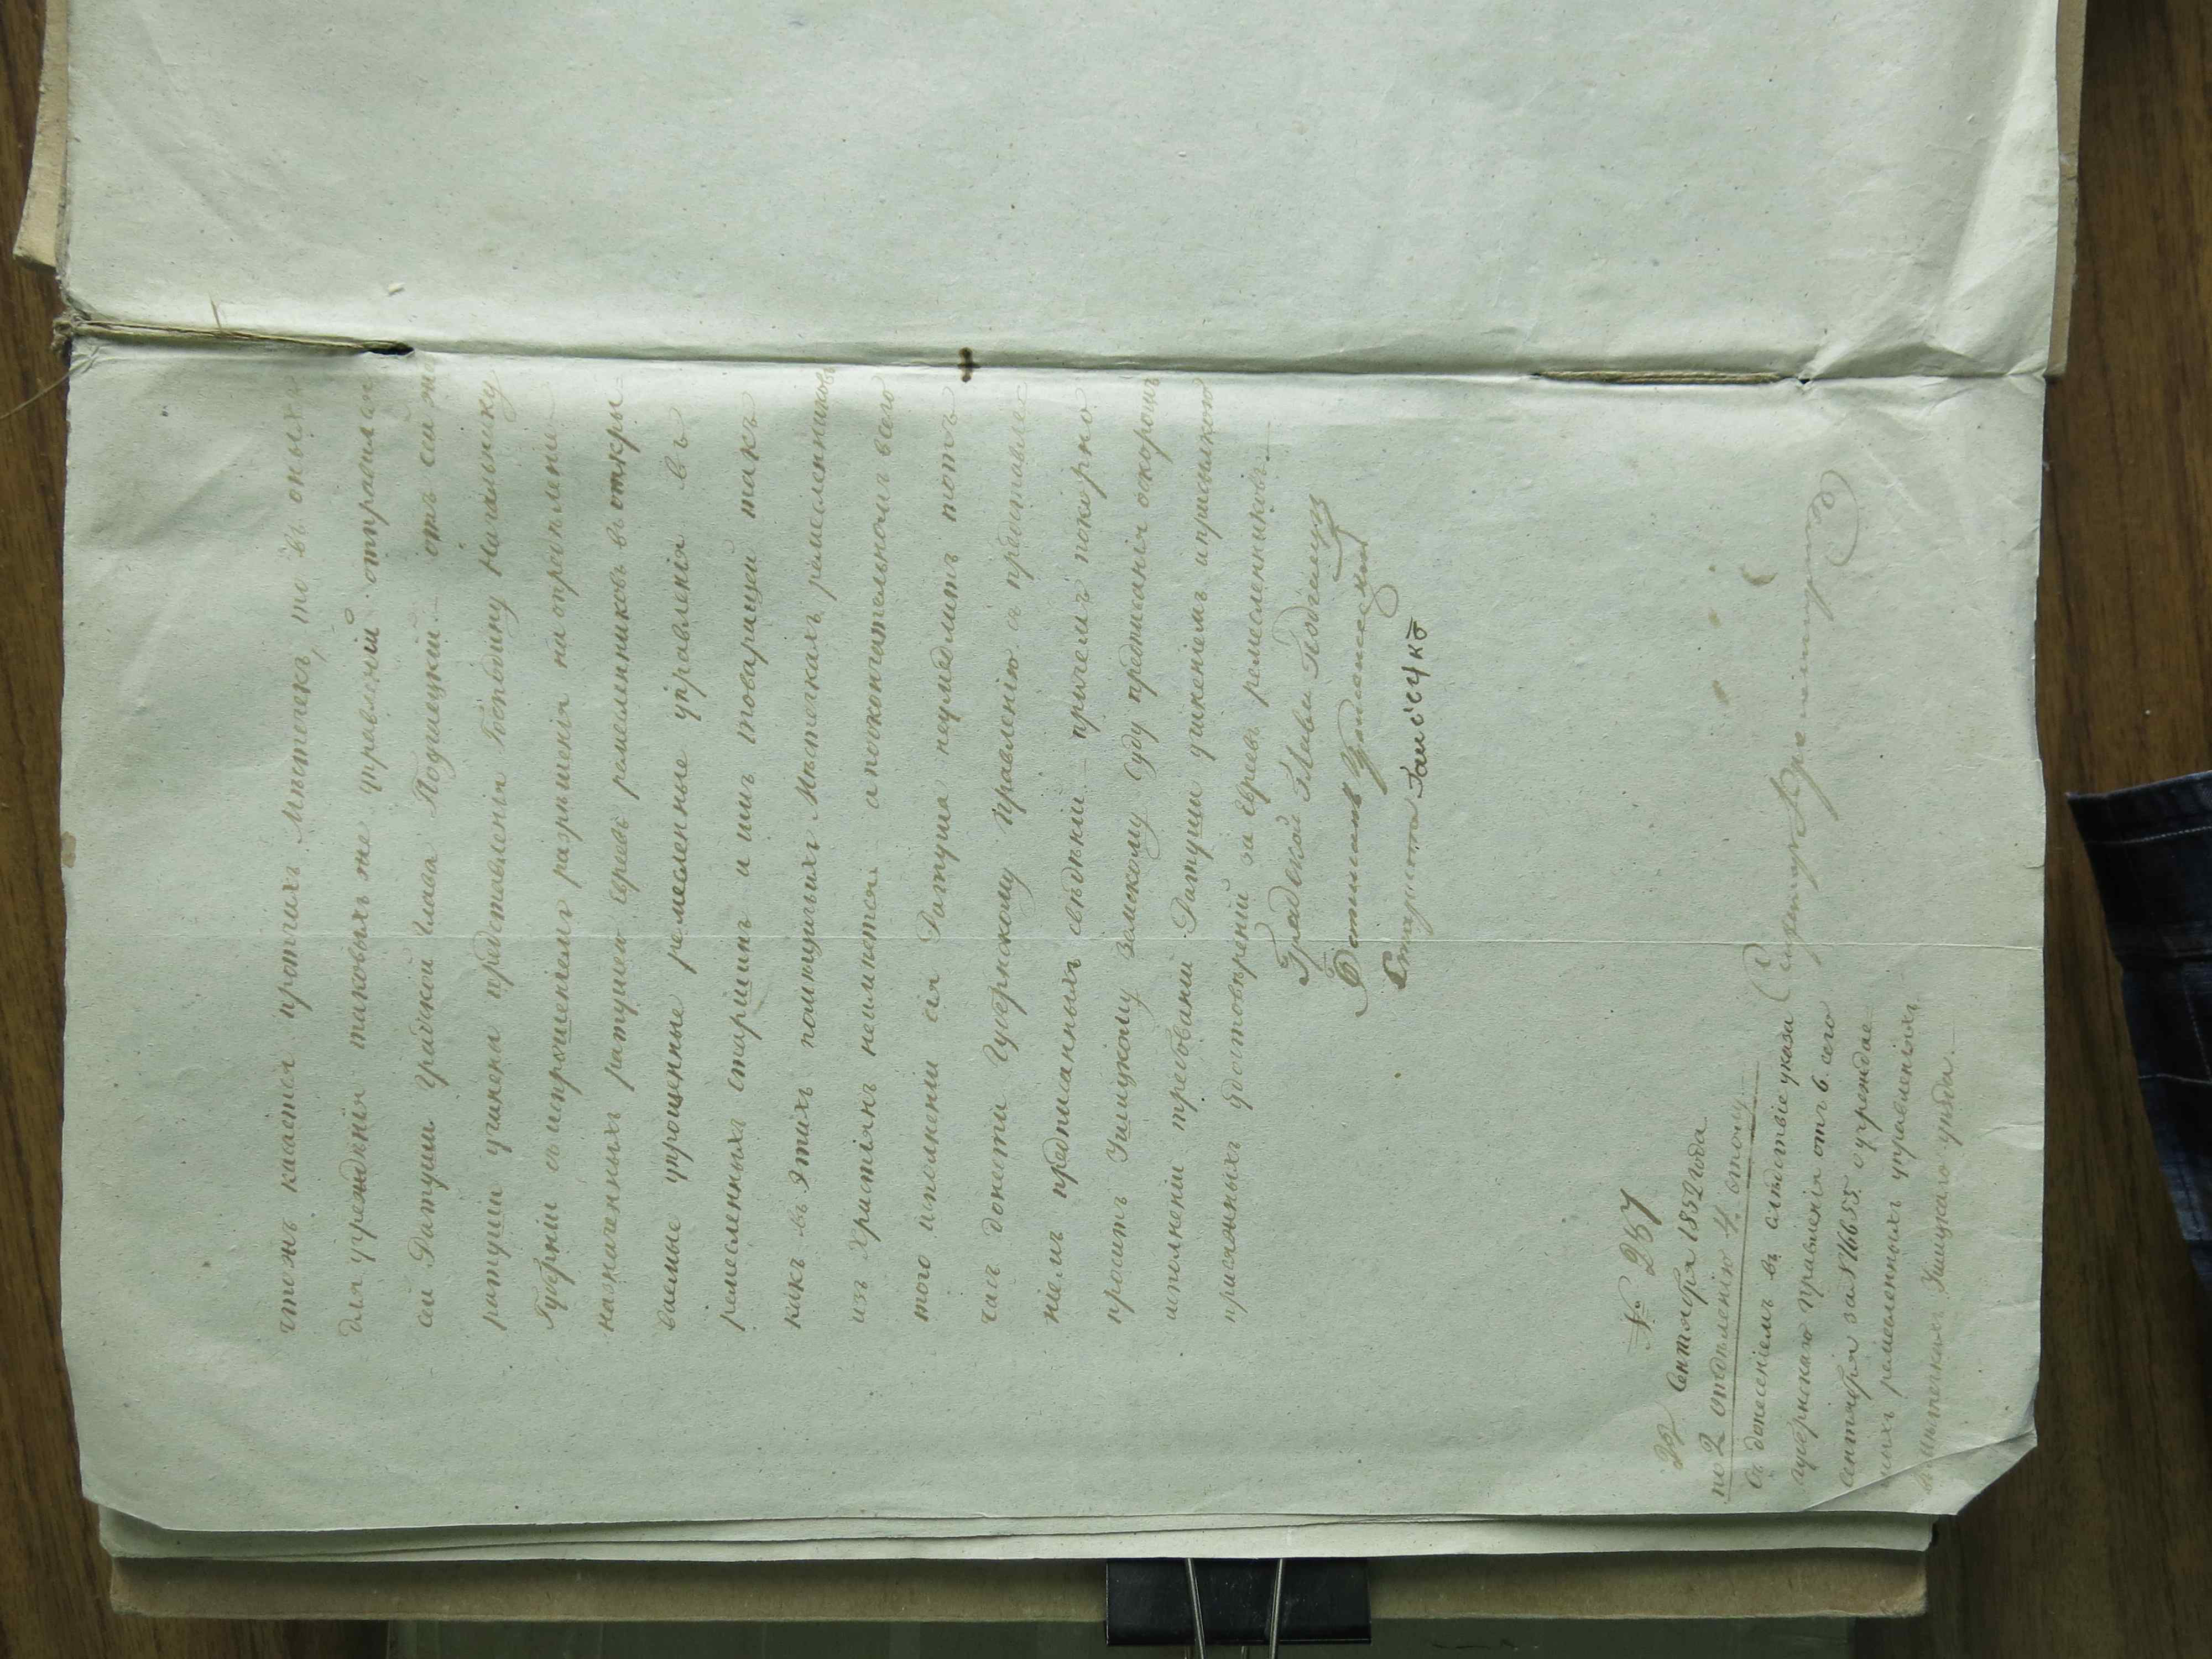 чтожъ касается протчихъ Мѣстечекъ, то въ оныхъ
для учрежденія таковыхъ же управленій отправился
сей Ратуши градской глава Подгиецкій отъ сей же
ратуши учинена представленія Господину Начальнику
Губерніи съ испрошеніемъ разрѣшенія на опредѣленіе
назначенныхъ ратушею евреевъ ремесленниковъ въ откры
ваемые упрощенные ремесленные управленія въ
ремесленныхъ старшинъ и ихъ товарищей такъ
какъ въ этихъ помѣщичьихъ Мѣстечкахъ ремесленниковъ
изъ христіянъ неимѣется а поокончательномъ всего
того исполненіи сія Ратуша неумедлитъ тотъ
часъ донести Губернскому Правленію съ представле
ніемъ предписанныхъ свѣдѣній причемъ покорно
проситъ Ушицкому Земскому Суду предписанія оскорѣйш
исполненіи требованій Ратуши учиненіемъ и присылкою
присяжныхъ удостовѣреній за евреевъ ремесленниковъ
Градской Глава
Ратманъ
Староста
№ 257
22 Сентября 1852 года
по 2 отдѣленію 4 столу
Съ донесеніемъ въ слѣдствіе указа
губернскаго правленія отъ 6 сего
сентября за № 16655 о учрежде
ніихъ ремесленныхъ управленіяхъ
въ мѣстечкахъ Ушицкаго уѣзда.
Секретарь